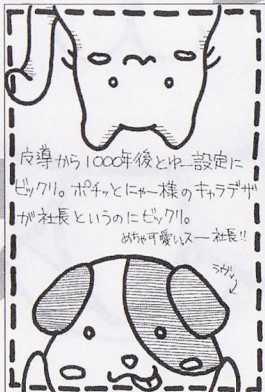 反導から1000年後とゆー設定に
ビックリ。ポチッとにゃー様のキャラデザ
が社長というのにビックリ。
めちゃ可愛いスー社長!!